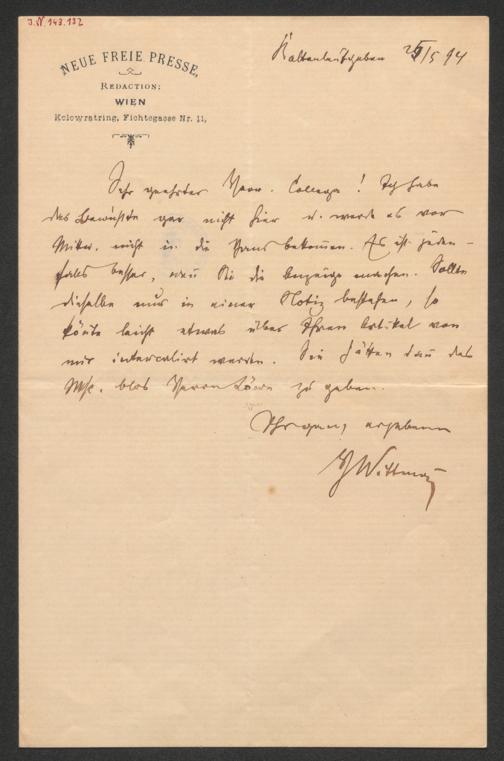 J.N. 143.132
NEUE FREIE PRESSE,
REDACTION:
WIEN
Kolowratring, Fichtegasse Nr. 11,
Kaltenleutgeben 25/5 94
Sehr geehrter Herr College! Ich habe
das Bewußte gar nicht hier u. werde es vor
Mittw. nicht in die Hand bekommen. Es ist jeden-
falls besser, wenn Sie die Anzeige machen. Sollte
dieselbe nur in einer Notiz bestehen, so
könnte leicht etwas über Ihren Artikel von
mir intercalirt werden. Sie hätten dann das
Msc. blos Herrn zu geben.
Ihr ganz ergebener
Wittmann